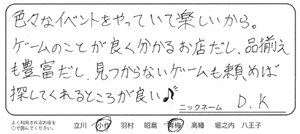 色々なイベントをやっていて楽しいから。
ゲームのことが良く分かるお店だし、品揃え
も豊富だし、見つからないゲームも頼めば
探してくれるところが良い♪
ニックネーム D.K
よく利用されるお店を
○で囲んでください。 立川 小作 羽村 昭島 青梅 高幡 堀之内 八王子